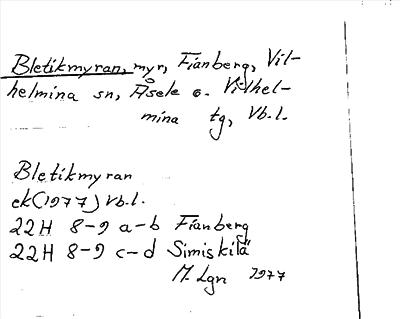 Bletikmyran, myr, Fianberg, Vil-
helmina sn, Åsele o. Vilhel-
mina tg, Vb.l.
Bletikmyran
ek(1977) Vb.l.
22H 8-9 a-b Fianberg
22H 8-9 c-d Simiskilä
M. Lgn 1977